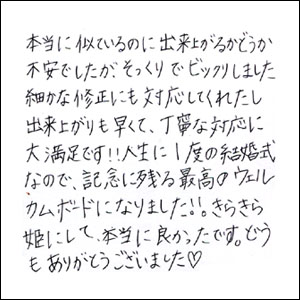 本当に似ているのに出来上がるかどうか
不安でしたが、そっくりでビックリしました
細かな修正にも対応してくれたし
出来上がりも早くて、丁寧な対応に
大満足です!!人生に1度の結婚式
なので、記念に残る最高のウェル
カムボードになりました!!。きらきら
姫にして、本当に良かったです。どう
もありがとうございました♡